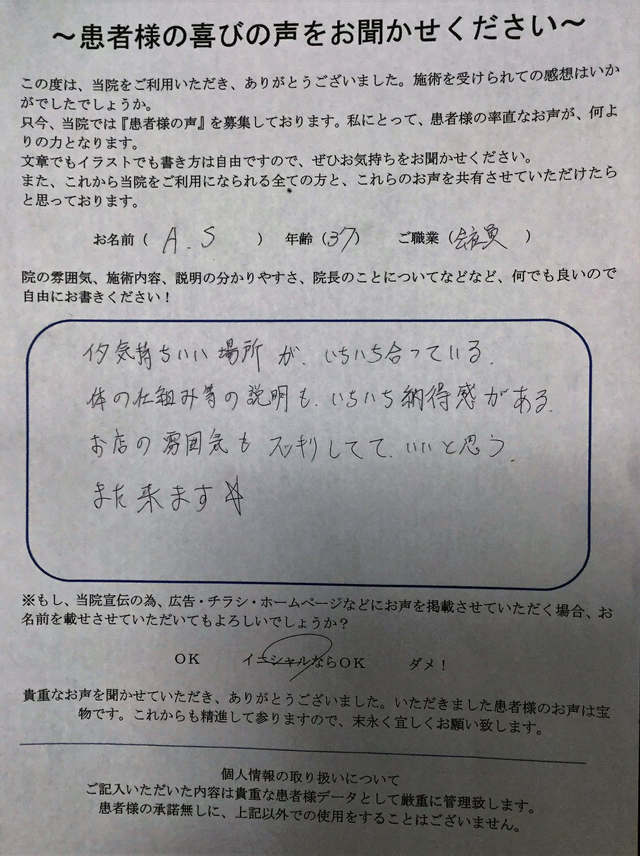 ～患者様の喜びの声をお聞かせください～
この度は、当院をご利用いただき、ありがとうございました。施術を受けられての感想はいか
がでしたでしょうか。
只今、当院では『患者様の声』を募集しております。私にとって、患者様の率直なお声が、何よ
りの力となります。
文章でもイラストでも書き方は自由ですので、ぜひお気持ちをお聞かせください。
また、これから当院をご利用になられる全ての方と、これらのお声を共有させていただけたら
と思っております。
お名前（ A.S ） 年齢（37） ご職業（ ）
院の雰囲気、施術内容、説明の分かりやすさ、院長のことについてなどなど、何でも良いので
自由にお書きください！
気持ちいい場所が、いちいち合っている。
体の仕組み等の説明も、いちいち納得感がある。
お店の雰囲気もスッキリしてて、いいと思う。
また来ます☆
※もし、当院宣伝の為、広告・チラシ・ホームページなどにお声を掲載させていただく場合、お
名前を載せさせていただいてもよろしいでしょうか？
ＯＫ イニシャルならＯＫ ダメ！
貴重なお声を聞かせていただき、ありがとうございました。いただきました患者様のお声は宝
物です。これからも精進して参りますので、末永く宜しくお願い致します。
個人情報の取り扱いについて
ご記入いただいた内容は貴重な患者様データとして厳重に管理致します。
患者様の承諾無しに、上記以外での使用をすることはございません。